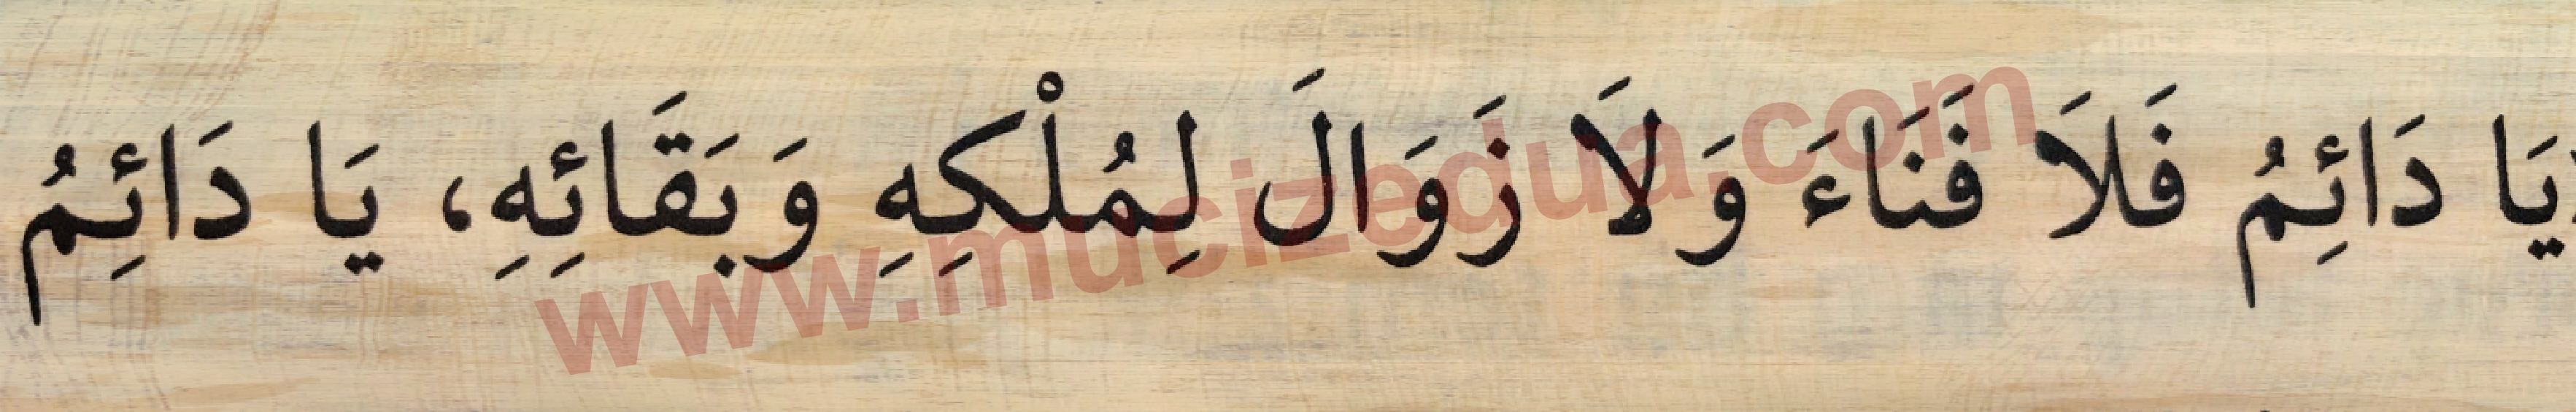 يَا دَائِمُ فَلاَ فَنَاءَ وَلاَ زَوَالَ لِمُلْكِهِ وَبَقَائِهِ، يَا دَائِمُ
www.mucizedua.com